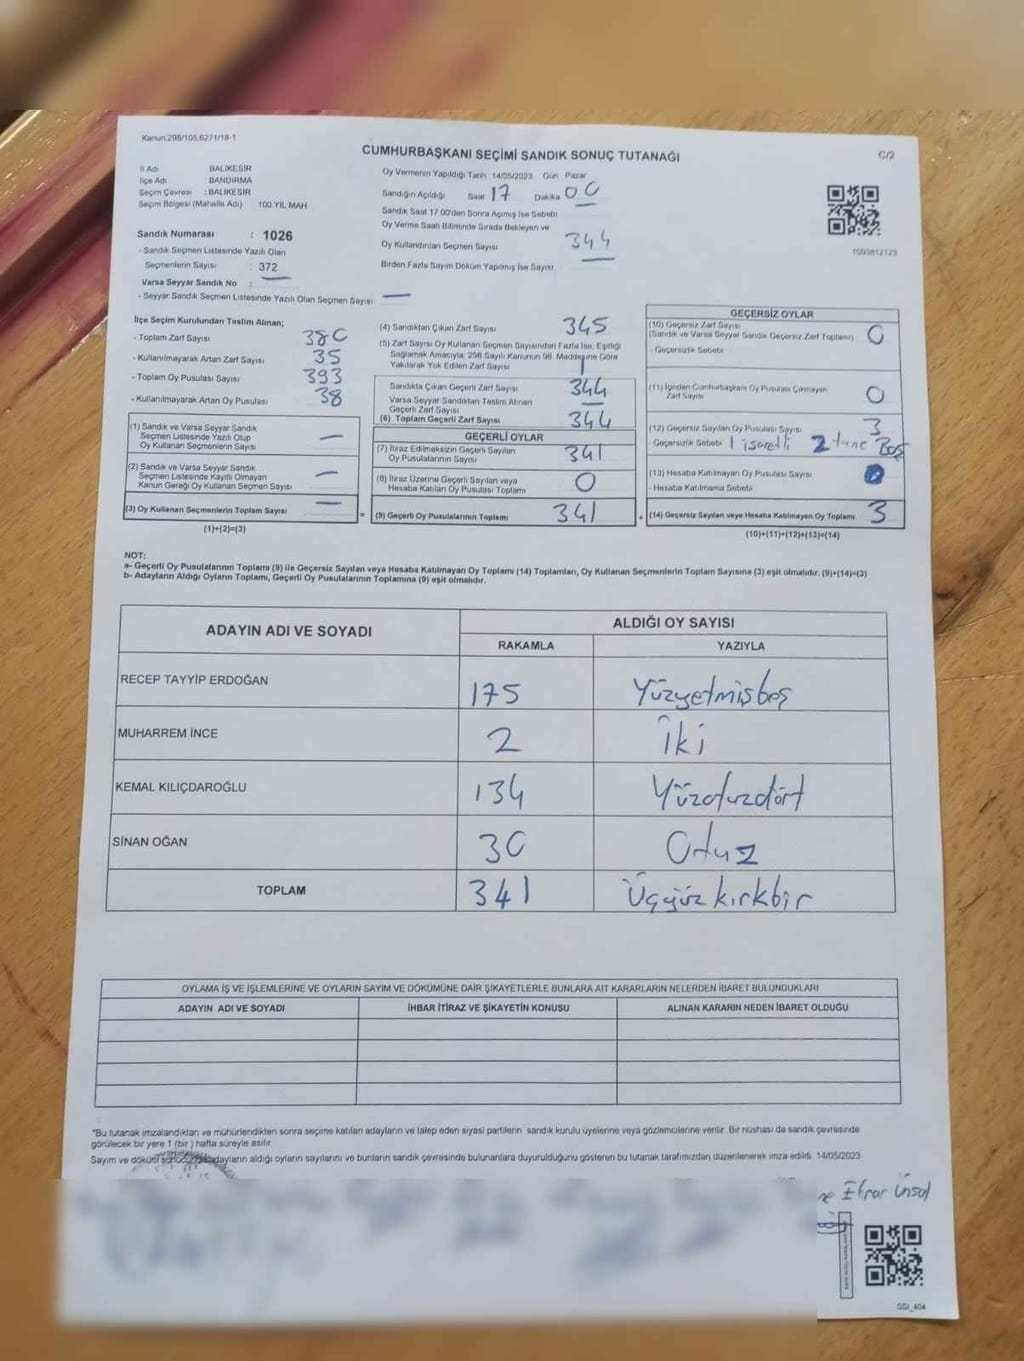 Kanun:298/105,6271/18-1
CUMHURBAŞKANI SEÇİMİ SANDIK SONUÇ TUTANAĞI
C/2
İl Adı BALIKESİR
İlçe Adı : BANDIRMA
Seçim Çevresi : BALIKESİR
Seçim Bölgesi (Mahalle Adı) : 100.YIL MAH
Sandık Numarası : 1026
- Sandık Seçmen Listesinde Yazılı Olan
Seçmenlerin Sayısı : 372
Varsa Seyyar Sandık No :
- Seyyar Sandık Seçmen Listesinde Yazılı Olan Seçmen Sayısı —
Oy Vermenin Yapıldığı Tarih 14/05/2023 Gün Pazar
Sandığın Açıldığı Saat 17 Dakika 00
Sandık Saat 17.00'den Sonra Açımış İse Sebebi
Oy Verme Saati Bitiminde Sırada Bekleyen ve
Oy Kullandırılan Seçmen Sayısı 344
Birden Fazla Sayım Döküm Yapılmış İse Sayısı
1093812123
İlçe Seçim Kurulundan Teslim Alınan;
- Toplam Zarf Sayısı 380
- Kullanılmayarak Artan Zarf Sayısı 35
- Toplam Oy Pusulası Sayısı 393
- Kullanılmayarak Artan Oy Pusulası 38
(1) Sandık ve Varsa Seyyar Sandık
Seçmen Listesinde Yazılı Olup
Oy Kullanan Seçmenlerin Sayısı —
(2) Sandık ve Varsa Seyyar Sandık
Seçmen Listesinde Kayıtlı Olmayan
Kanun Gereği Oy Kullanan Seçmen Sayısı —
(3) Oy Kullanan Seçmenlerin Toplam Sayısı — =
(1)+(2)=(3)
(4) Sandıktan Çıkan Zarf Sayısı 345
(5) Zarf Sayısı Oy Kullanan Seçmen Sayısından Fazla İse, Eşitliği
Sağlamak Amacıyla, 298 Sayılı Kanunun 98. Maddesine Göre
Yakılarak Yok Edilen Zarf Sayısı 1
Sandıkta Çıkan Geçerli Zarf Sayısı 344
Varsa Seyyar Sandıktan Teslim Alınan
Geçerli Zarf Sayısı —
(6) Toplam Geçerli Zarf Sayısı 344
GEÇERLİ OYLAR
(7) İtiraz Edilmeksizin Geçerli Sayılan
Oy Pusulalarının Sayısı 341
(8) İtiraz Üzerine Geçerli Sayılan veya
Hesaba Katılan Oy Pusulası Toplamı 0
(9) Geçerli Oy Pusulalarının Toplamı 341 +
GEÇERSİZ OYLAR
(10) Geçersiz Zarf Sayısı
(Sandık ve Varsa Seyyar Sandık Geçersiz Zarf Toplamı) 0
- Geçersizlik Sebebi
(11) İçinden Cumhurbaşkanı Oy Pusulası Çıkmayan
Zarf Sayısı 0
(12) Geçersiz Sayılan Oy Pusulası Sayısı 3
- Geçersizlik Sebebi 1 işaretli 2 tane Boş
(13) Hesaba Katılmayan Oy Pusulası Sayısı
- Hesaba Katılmama Sebebi
(14) Geçersiz Sayılan veya Hesaba Katılmayan Oy Toplamı 3
(10)+(11)+(12)+(13)=(14)
NOT:
a- Geçerli Oy Pusulalarının Toplamı (9) ile Geçersiz Sayılan veya Hesaba Katılmayan Oy Toplamı (14) Toplamları, Oy Kullanan Seçmenlerin Toplam Sayısına (3) eşit olmalıdır. (9)+(14)=(3)
b- Adayların Aldığı Oyların Toplamı, Geçerli Oy Pusulalarının Toplamına (9) eşit olmalıdır.
ADAYIN ADI VE SOYADI ALDIĞI OY SAYISI
RAKAMLA YAZIYLA
RECEP TAYYİP ERDOĞAN 175 Yüzyetmişbeş
MUHARREM İNCE 2 İki
KEMAL KILIÇDAROĞLU 134 Yüzotuzdört
SİNAN OĞAN 30 Otuz
TOPLAM 341 Üçyüz kırkbir
OYLAMA İŞ VE İŞLEMLERİNE VE OYLARIN SAYIM VE DÖKÜMÜNE DAİR ŞİKAYETLERLE BUNLARA AİT KARARLARIN NELERDEN İBARET BULUNDUKLARI
ADAYIN ADI VE SOYADI İHBAR İTİRAZ VE ŞİKAYETİN KONUSU ALINAN KARARIN NEDEN İBARET OLDUĞU
"Bu tutanak imzalandıktan ve mühürlendikten sonra seçime katılan adayların ve talep eden siyasi partilerin sandık kurulu üyelerine veya gözlemcilerine verilir. Bir nüshası da sandık çevresinde
görülecek bir yere 1 (bir) hafta süreyle asılır.
Sayım ve dökümü sonucunda adayların aldığı oyların sayılarını ve bunların sandık çevresinde bulunanlara duyurulduğunu gösteren bu tutanak tarafımızdan düzenlenerek imza edildi. 14/05/2023
SSI_404